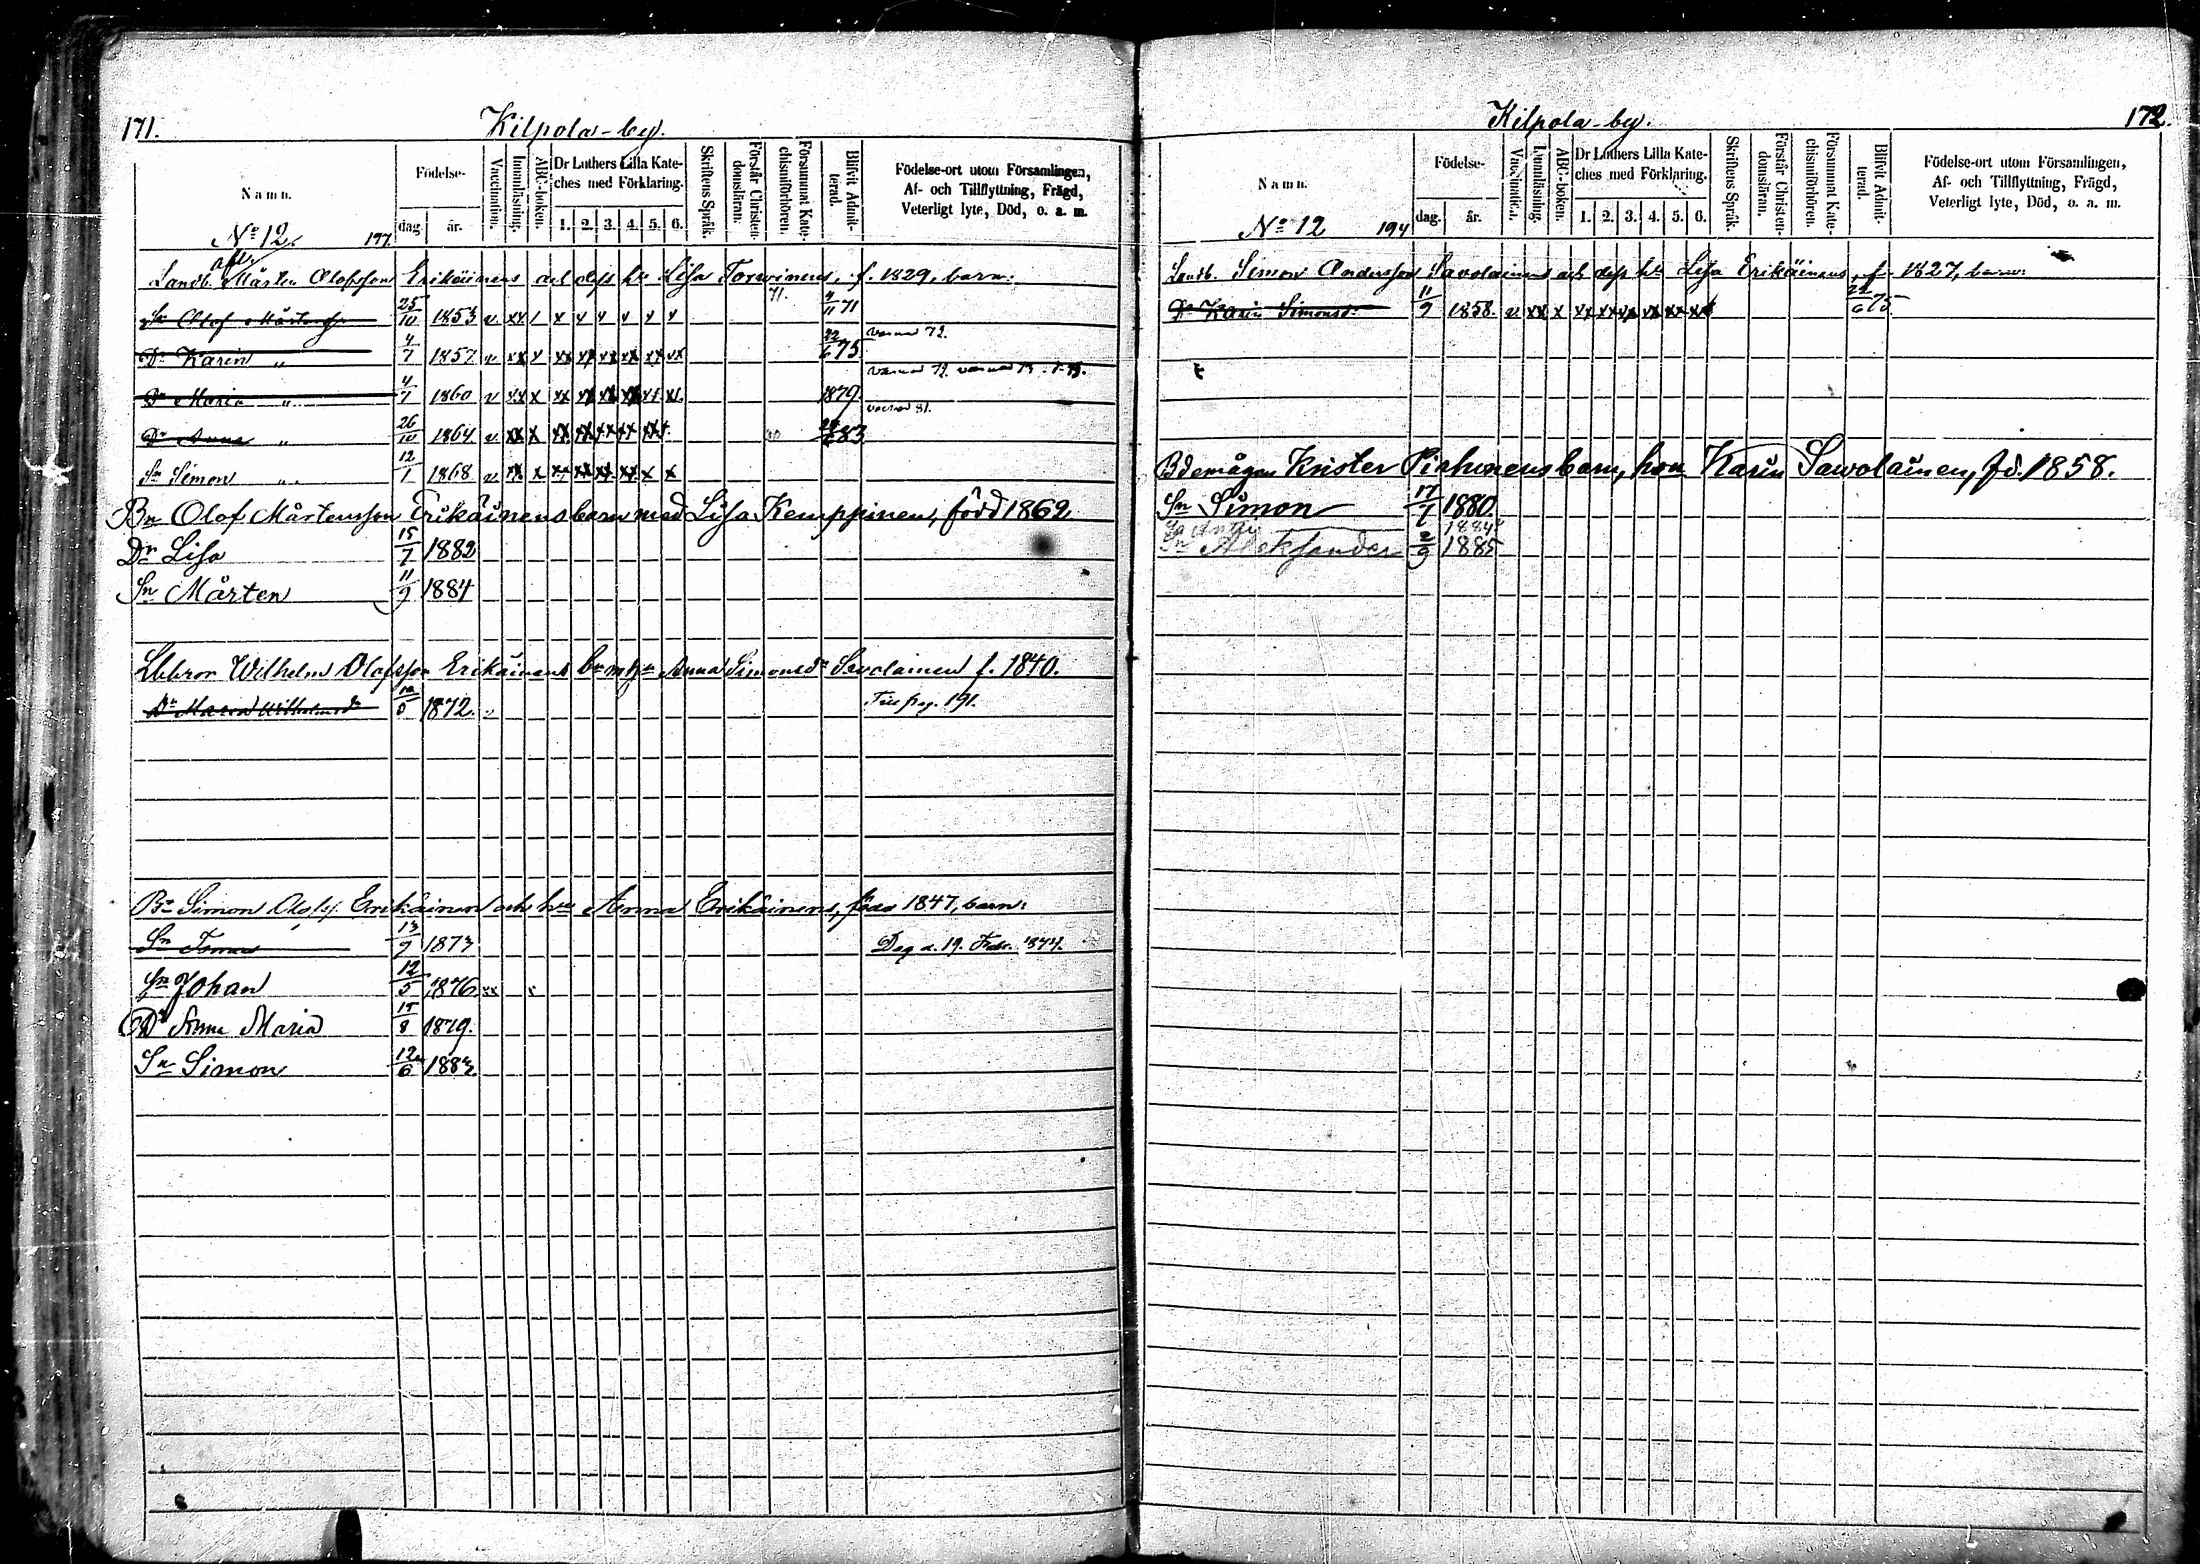 171.
Kilpola-by.
Namn.
Födelse-
dag. år.
Vaccination.
Innanläsning.
ABC-boken.
Dr Luthers Lilla Kate-
ches med Förklaring.
1. 2. 3. 4. 5. 6.
Skriftens Språk.
Förstår Christen-
domsläran.
Försummat Kate-
chismiförhören.
Blifvit Admit-
terad.
Födelse-ort utom Församlingen,
Af- och Tillflyttning, Frägd,
Veterligt lyte, Död, o. a. m.
No 12. 197
afl.
Landb. Mårten Olofsson Erikäinens och dess hu Lisa Torvinens, f. 1829, barn:
Sn Olof Mårtenss. 25/10 1853 v xx 1 x v v v v v 71. 4/11 71
Dr Karin " 4/7 1857 v xx x xx xx xx xx xx xx 22/6 75
Dr Maria " 4/7 1860 v xx x xx xx xx xx xx xx 1879.
Dr Anna " 26/10 1864 v xx x xx xx xx xx 83
Sn Simon " 12/1 1868 v xx x xx xx xx xx x x
Bn Olof Mårtensson Erikäinens barn med Lisa Kemppinen, född 1862
Dr Lisa 15/7 1882
Sn Mårten 11/9 1884
Wilhelm Olofsson Erikäinens Anna Simonsdr Savolainen f. 1840.
Dr Maria Wilhelmsdr 1872. v pag. 191.
Bn Simon Olofss. Erikäinen och hu Anna Erikäinens, född 1847, barn:
Sn Tomas 13/9 1873 Deg d. 19. Febr. 1874.
Sn Johan 12/5 1876 xx x
Dr Anna Maria 15/8 1879.
Sn Simon 12/6 1883
172.
Kilpola-by.
Namn.
Födelse-
dag. år.
Vaccination.
Innanläsning.
ABC-boken.
Dr Luthers Lilla Kate-
ches med Förklaring.
1. 2. 3. 4. 5. 6.
Skriftens Språk.
Förstår Christen-
domsläran.
Försummat Kate-
chismiförhören.
Blifvit Admit-
terad.
Födelse-ort utom Församlingen,
Af- och Tillflyttning, Frägd,
Veterligt lyte, Död, o. a. m.
No 12 194
Landb. Simon Andersson Savolainens och dess hu Lisa Erikäinens, f. 1827, barn:
Dr Karin Simonsd. 11/9 1858. v xx x xx xx xx xx xx xx 22/6 75.
Bdemågen Krister Pirhonens barn, hon Karin Sawolainen, fd. 1858.
Sn Simon 17/7 1880
Antti 1884
Sn Aleksander 2/9 1885